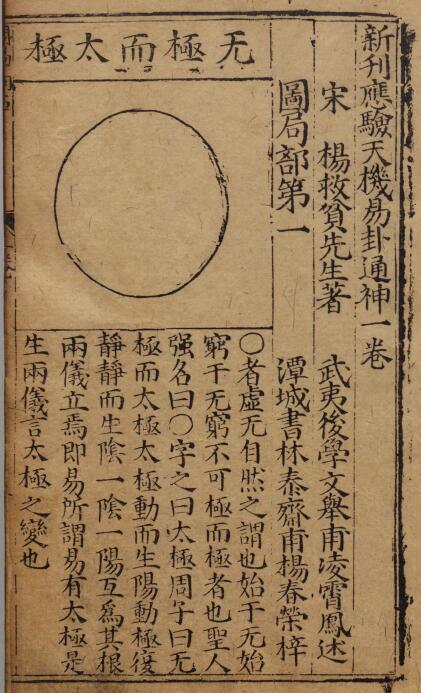 新刊應驗天機易卦通神一卷
宋 楊救貧先生著 武夷後學文舉甫凌霄鳳述
圖局部第一 潭城書林泰齋甫楊春榮梓
无極而太極
○者虛无自然之謂也始于无始
窮于无窮不可極而極者也聖人
强名曰○字之曰太極周子曰无
極而太極太極動而生陽動極復
靜靜而生陰一陰一陽互爲其根
兩儀立焉即易所謂易有太極是
生兩儀言太極之變也